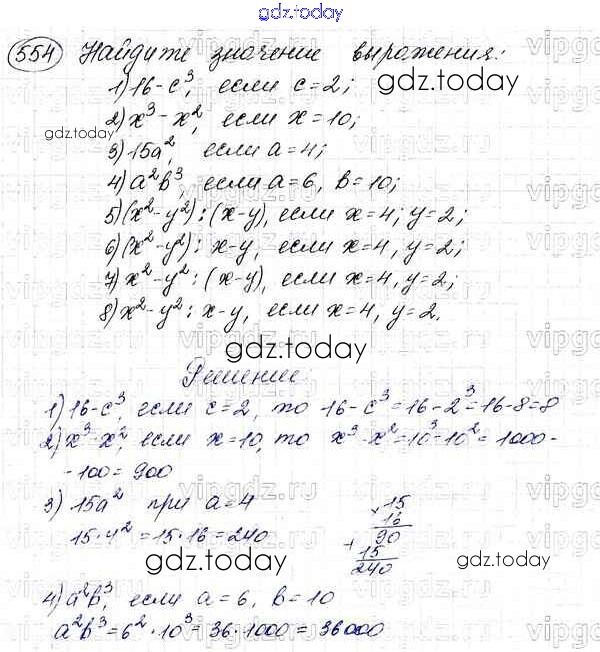 gdz.today
554 Найдите значение выражения:
1) 16-c³, если c=2;
gdz.today
2) x³-x², если x=10;
gdz.today
3) 15a², если a=4;
4) a²b³, если a=6, b=10;
5) (x²-y²):(x-y), если x=4; y=2;
6) (x²-y²): x-y, если x=4, y=2;
7) x²-y²:(x-y), если x=4, y=2;
8) x²-y²: x-y, если x=4, y=2.
gdz.today
Решение:
1) 16-c³, если c=2, то 16-c³=16-2³=16-8=8
2) x³-x², если x=10, то x³-x²=10³-10²=1000-
-100=900
3) 15a² при a=4
15·4²=15·16=240
×15
16
90
+15
240
gdz.today
gdz.today
4) a²b³, если a=6, b=10
a²b³=6²·10³=36·1000=36000